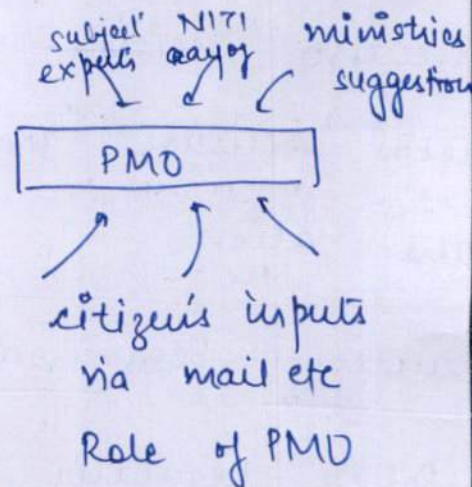 subject experts
NITI aayog
ministries suggestion
PMO
citizen's inputs
via mail etc
Role of PMO